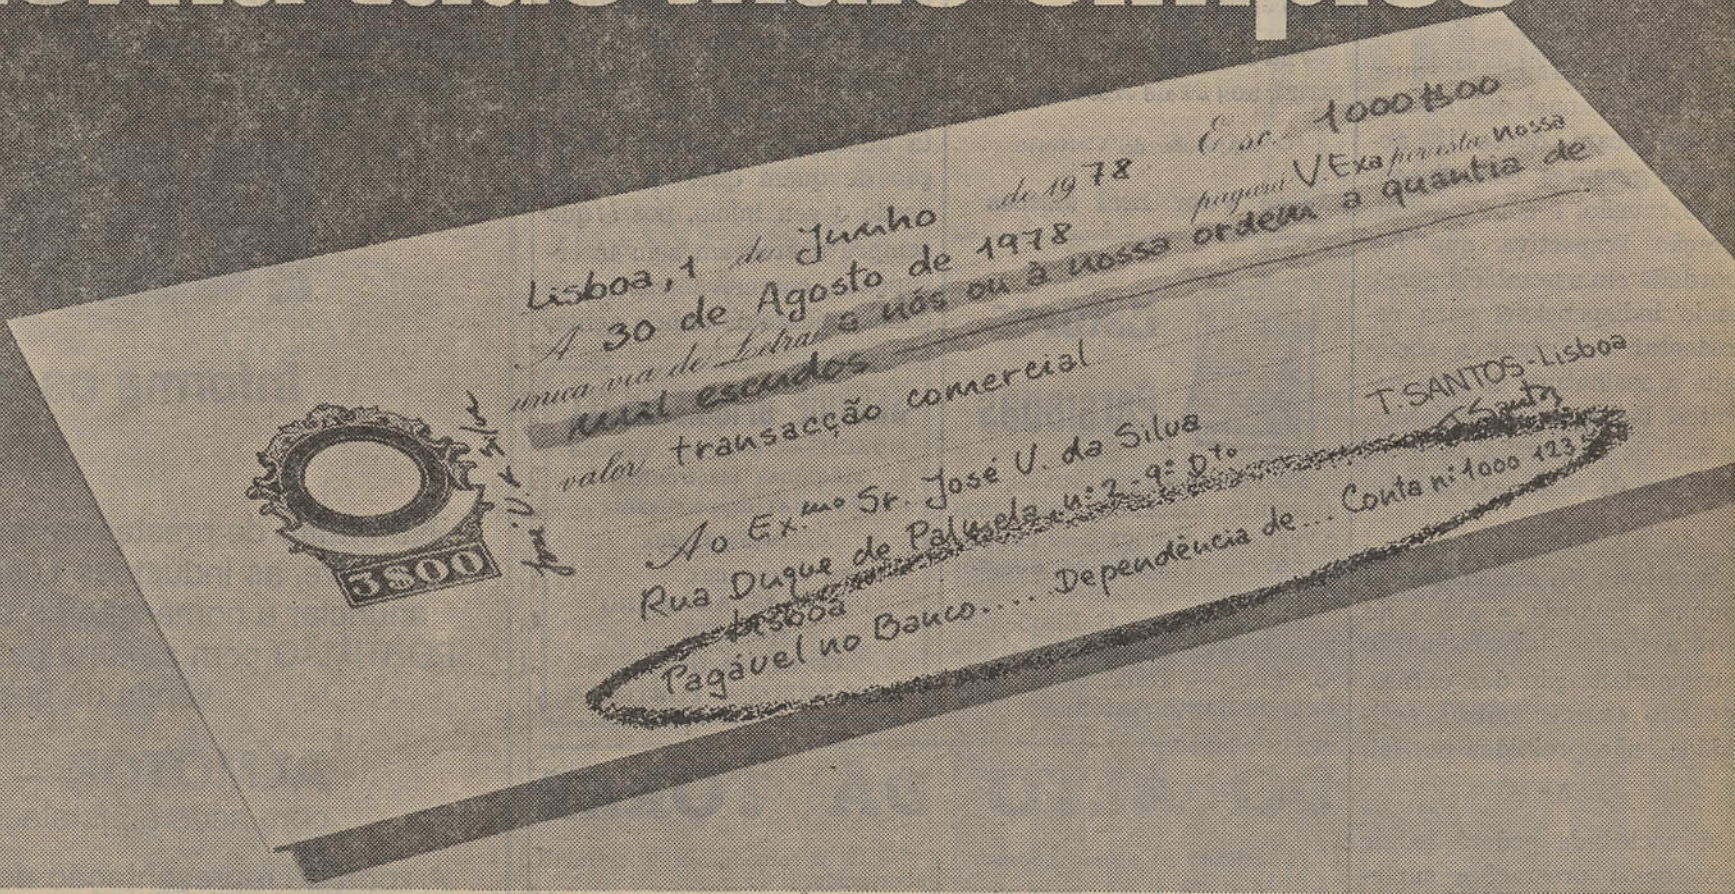 Lisboa, 1 de Junho de 1978 Esc. 1000$00
A 30 de Agosto de 1978 pagará V Exa por esta nossa
única via de Letra a nós ou à nossa ordem a quantia de
mil escudos
valor transacção comercial
T. SANTOS - Lisboa
T Santos
Ao Ex.mo Sr. José V. da Silva
Rua Duque de Palmela, nº 2 - 9º Dto
Lisboa
Pagável no Banco..... Dependência de... Conta nº 1000 123
3$00
José V. da Silva